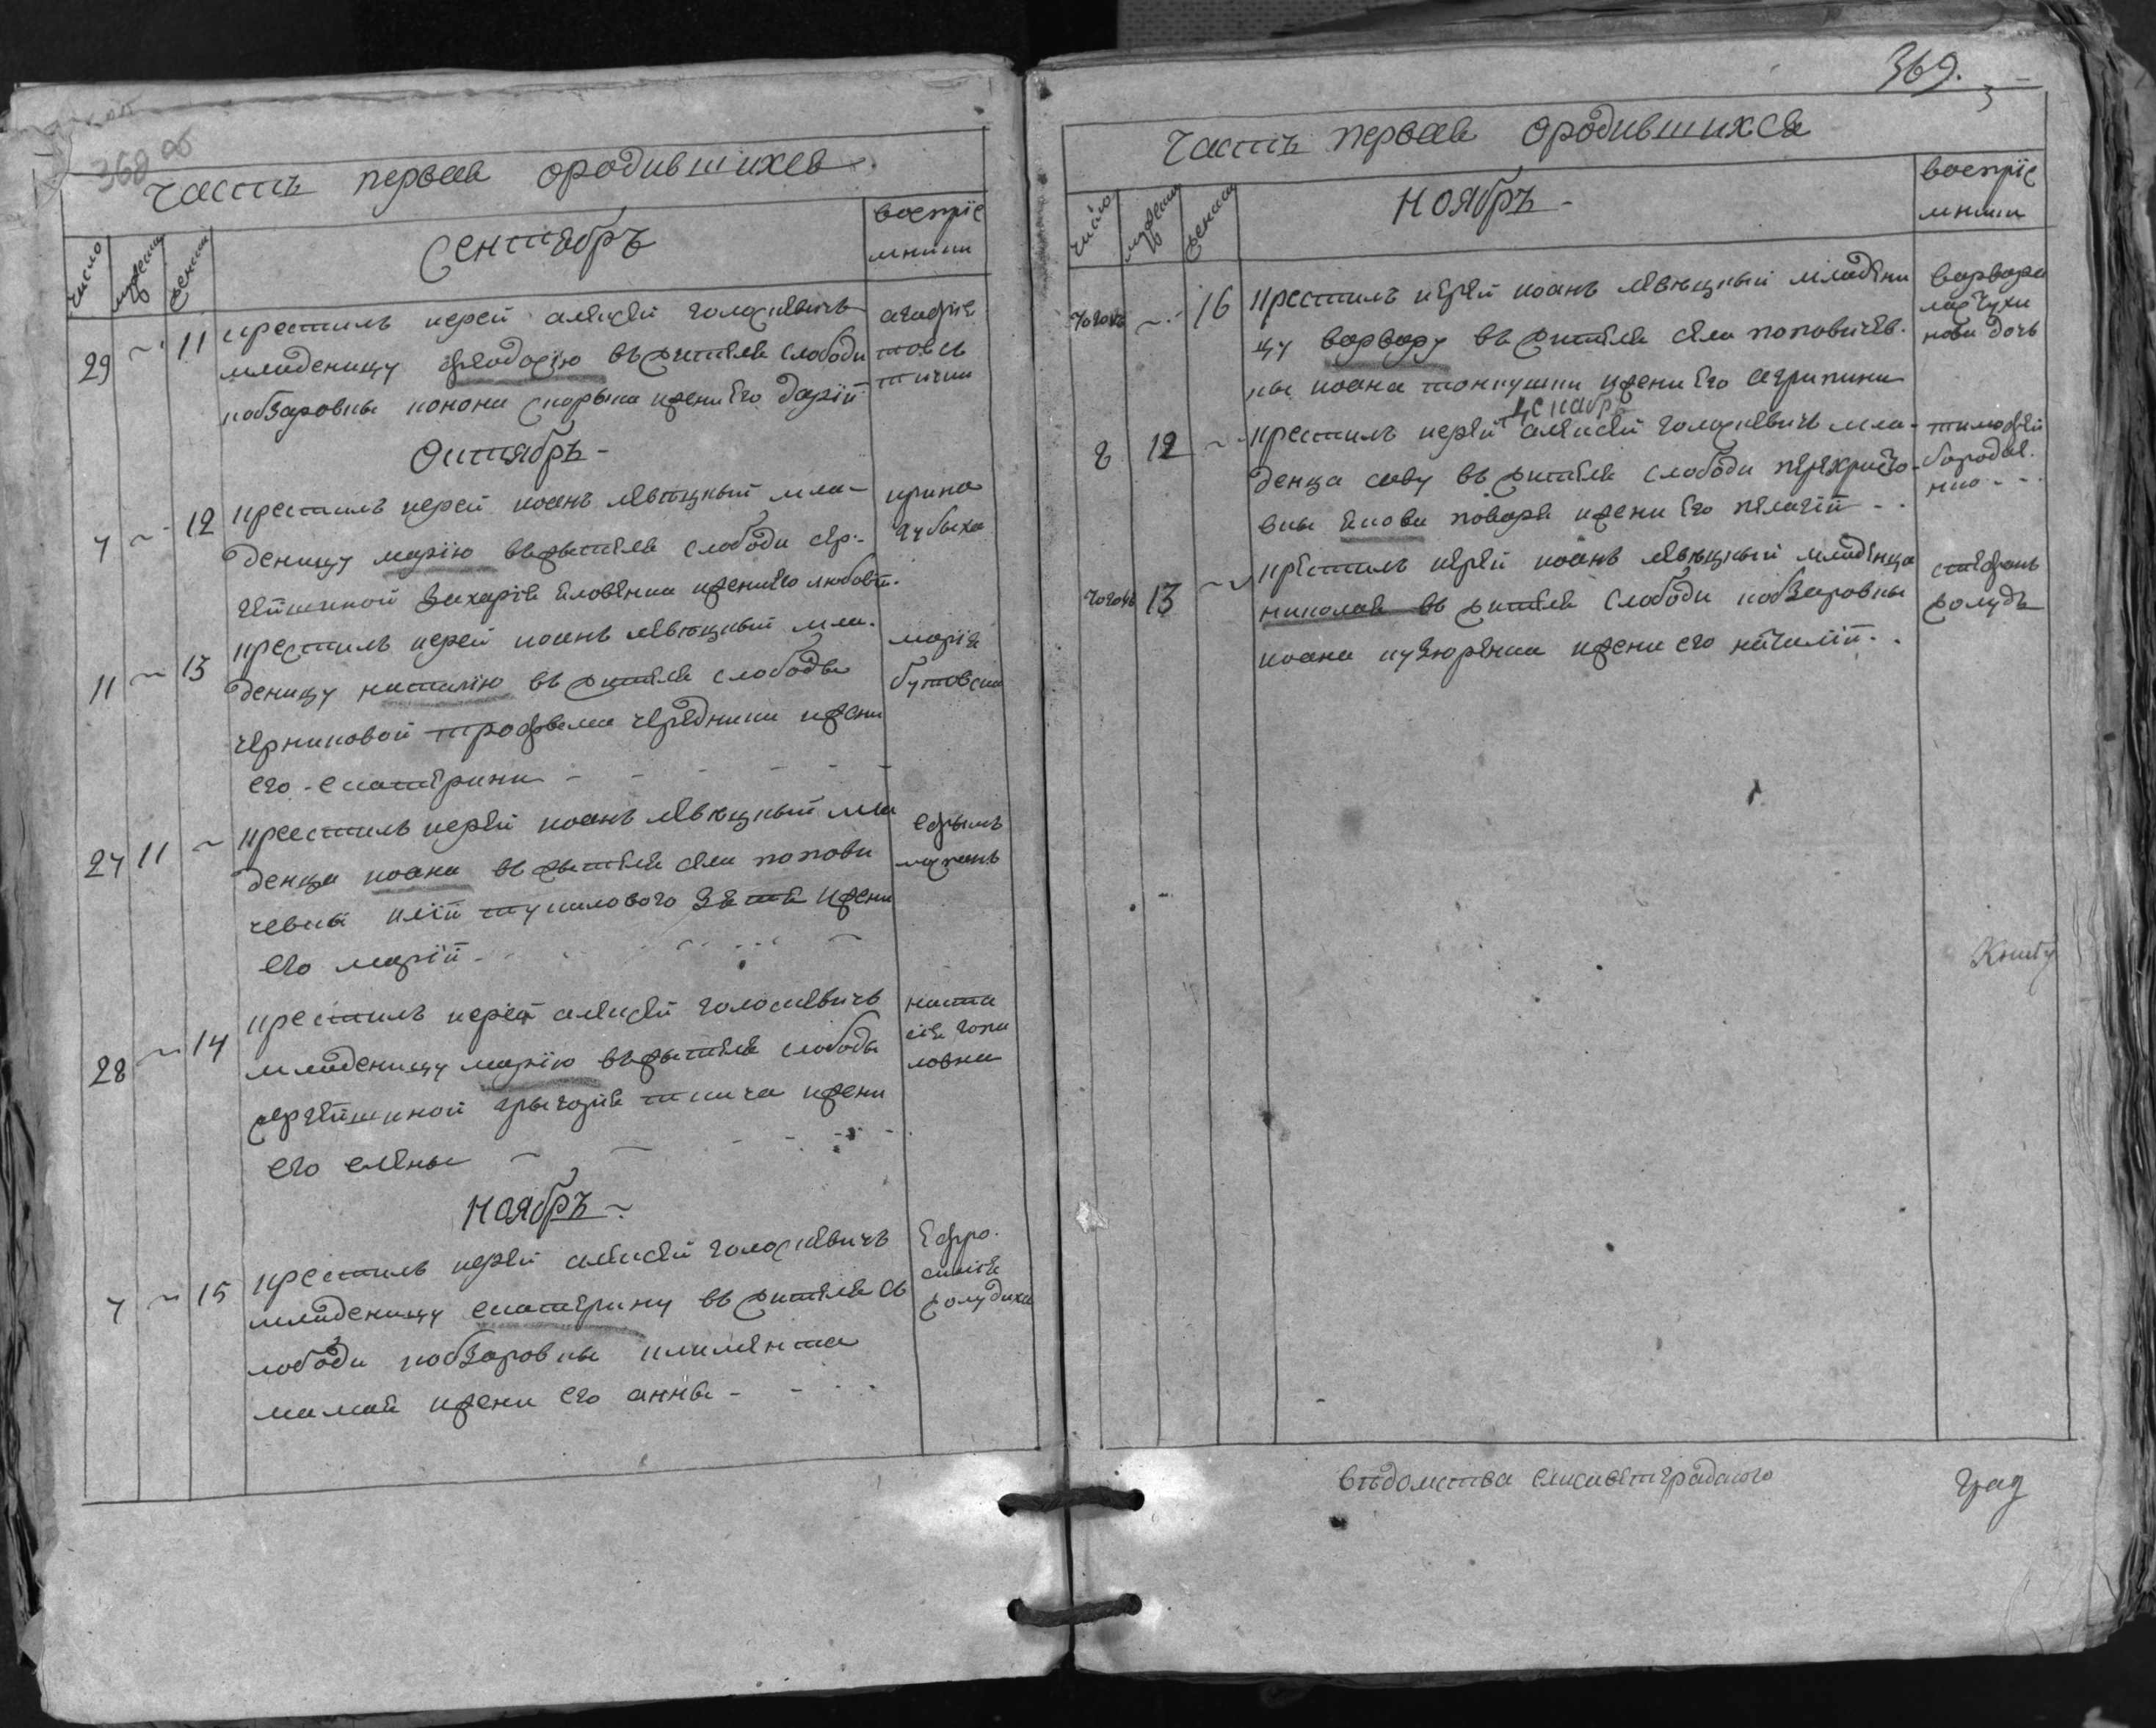 368 об
Часть первая ородившихся
число
мужеск
женск
Сентябрь
воспріе
мники
29 ~ 11 крестилъ иерей алексей голоскевичъ
младеницу феодосію въ жителя слободи
кобзаровки конона скорыка жени его дарій
агафія
товст
Октябрь -
7 ~ 12 крестилъ иерей иоанъ левицкый мла-
деницу марію въ жытеля слободи сер-
гейшиной захарія еловенка жени его любови.
ирина
зубыха
11 ~ 13 крестилъ иерей иоанъ левицкый мла-
деницу наталію въ жителя слободы
черниковой трофыма чередника жени
его екатерини - - - -
марія
бутовска
27 11 ~ крестилъ иерей иоанъ левицкый мла
денца иоана въ жытеля села попови
чевки илій тукилового зетя жени
его марій -
ефрымъ
28 ~ 14 крестилъ иерей алексей голоскевичъ
младеницу марію въ жытеля слободы
сергейшиной грыгорія ткача жени
его елены ~ ~ - - -
наста
сія гопа
ловна
Ноябръ ~
7 ~ 15 крестилъ иерей алексей голоскевичъ
младеницу екатерину въ жителя сь
лободи кобзаровки климента
мамай жени его анны - - -
Ефро-
синія
голудиха
369.
Часть первая ородившихся
число
мужеск
женск
Ноябръ -
воспріе
мники
тогожъ ~ 16 крестилъ иерей иоанъ левицкый младени
цу варвару въ жителя села поповичев-
ки иоана тонкушки жени его агрипини
варвара
нова дочь
декабр
8 12 ~ крестилъ иерей алексей голоскевичъ мла-
денца саву въ жителя слободи перехресто-
вки якова поваря жени его пелагій - -
тимофей
бородае.
нко - -
тогожъ 13 ~ крестилъ иерей иоанъ левицкый младенца
николая въ жителя слободи кобзаровки
иоана кузюренка жени его наталій - .
стефанъ
голудъ
Книгу
вѣдомства елисаветградского
град